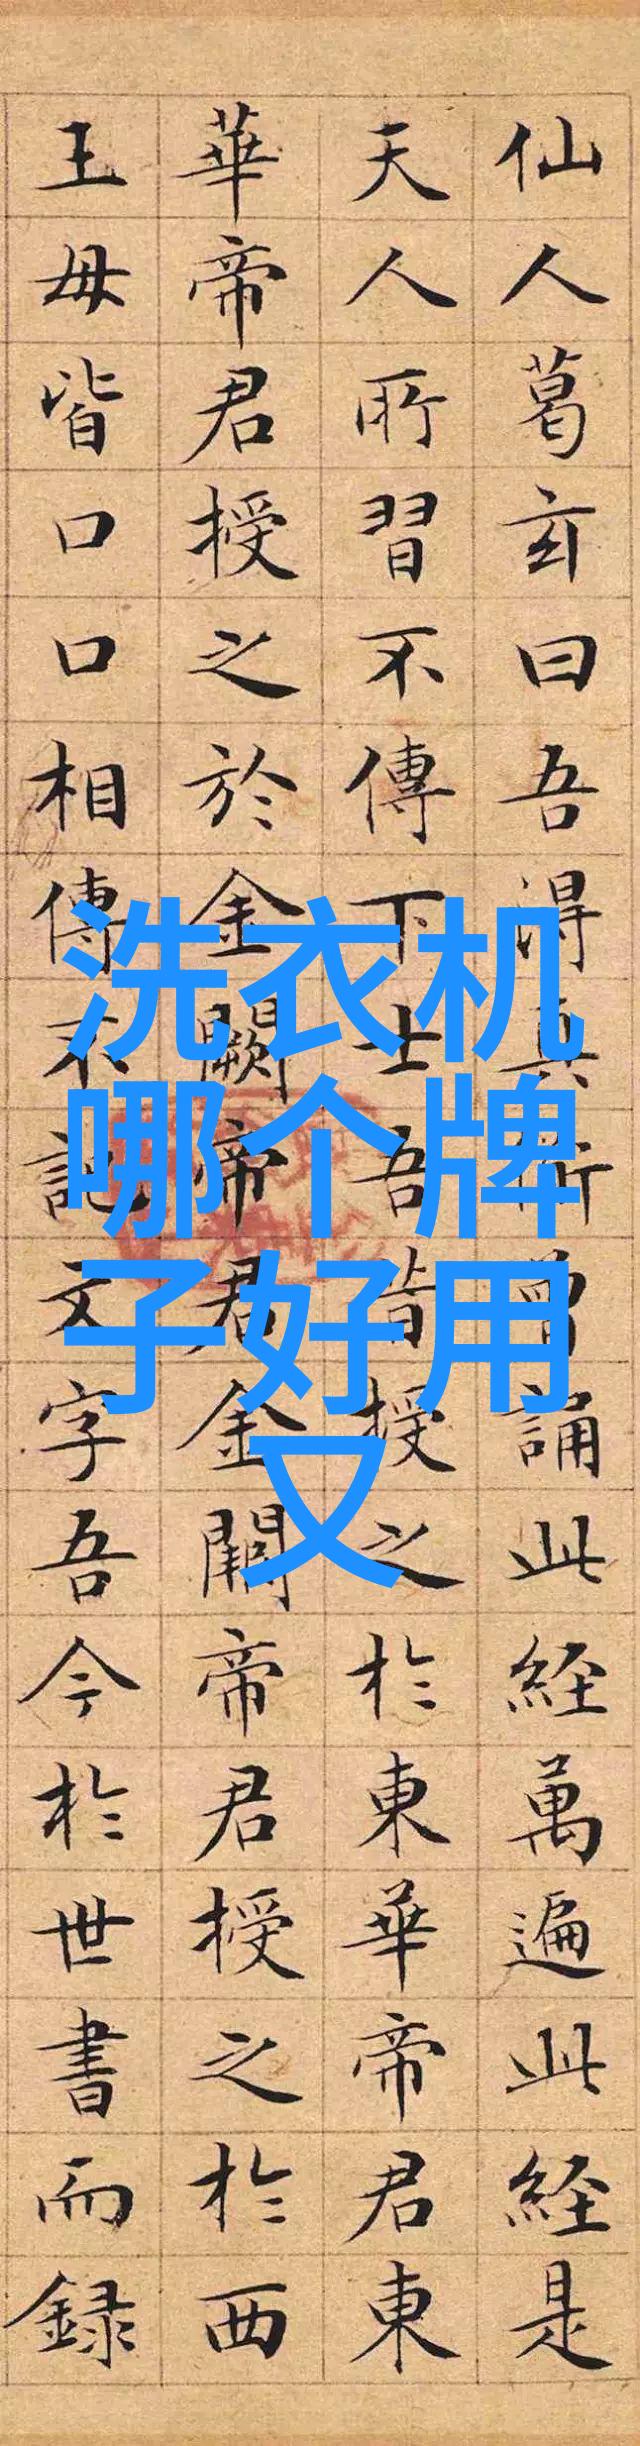 仙人葛玄曰吾得真術曾誦此経萬遍此経是
天人所習不傳下士吾昔授之於東華帝君東
華帝君授之於金闕帝君金闕帝君授之於西
王母皆口口相傳不記文字吾今於世書而録
洗衣机
哪个牌
子好用
又